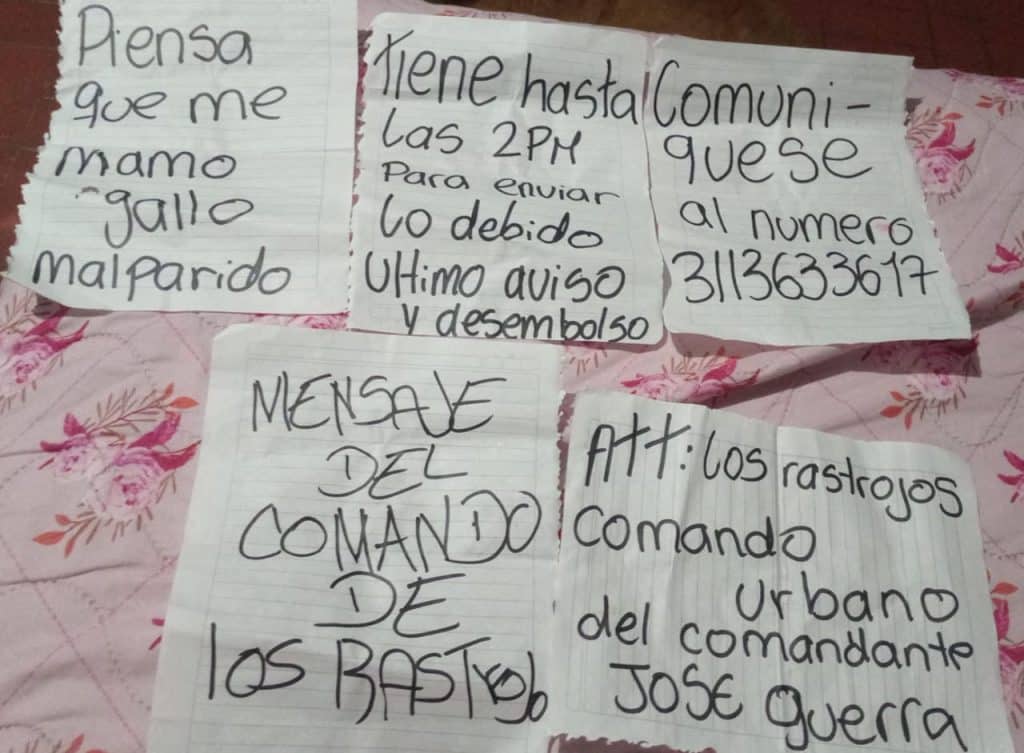 Piensa
que me
mamo
gallo
malparido
tiene hasta
las 2PM
Para enviar
lo debido
Ultimo aviso
y desembolso
Comuni-
quese
al numero
3113633617
MENSAJE
DEL
COMANDO
DE
los RASTrojo
Att: los rastrojos
Comando
urbano
del comandante
JOSE guerra